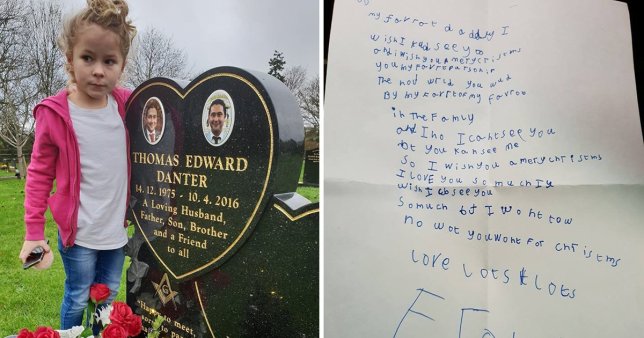 THOMAS EDWARD
DANTER
14. 12. 1975 - 10. 4. 2016
A Loving Husband,
Father, Son, Brother
and a Friend
to all
"Happy to meet,
to
my forrot daddy I
wish I cud see you
and i wish you a mery cristms
you my forro
The hol
By my
in the Famly
and I no I cant see you
bt you kan see me
so I wish you a mery christms
I Love you so much I
wish I cb see you
so much bt I wont tow
no wot you wont for christms
Love Lots & Lots